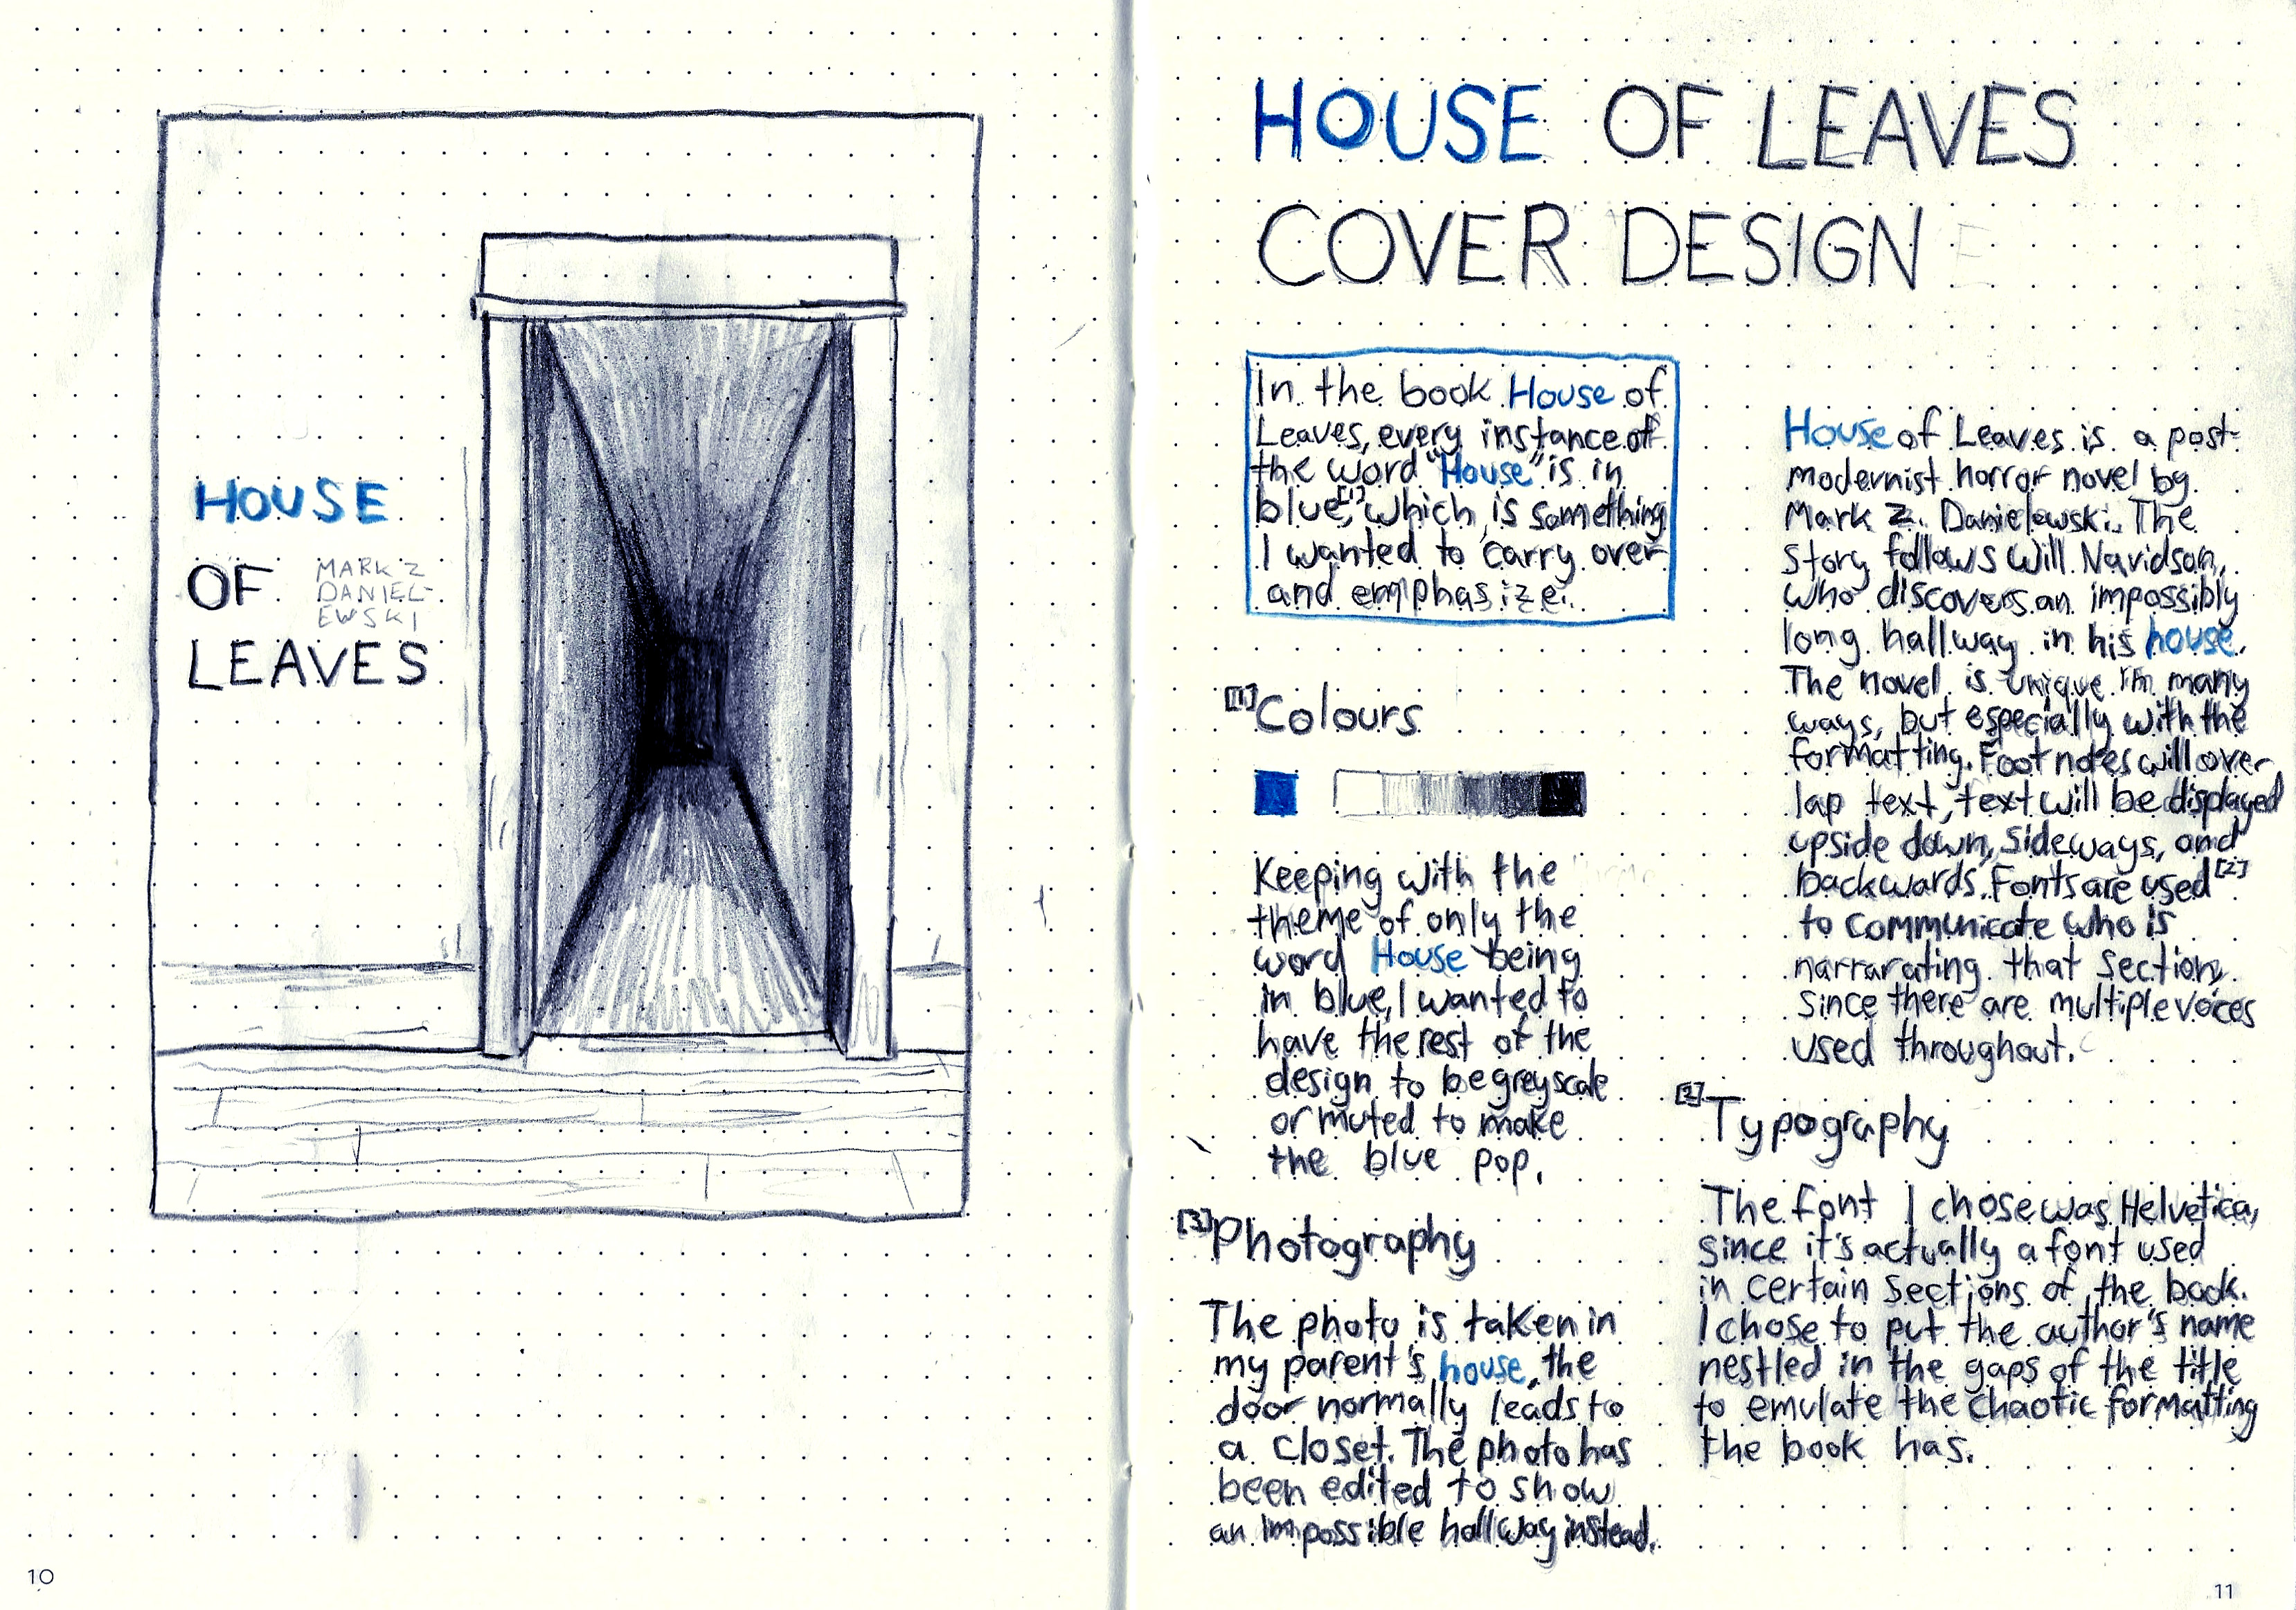 HOUSE
OF
LEAVES
MARK Z
DANIEL-
EWSKI
10
HOUSE OF LEAVES
COVER DESIGN
In the book House of
Leaves, every instance of
the word "House" is in
blue,[1] which is something
I wanted to carry over
and emphasize.
[1] Colours
Keeping with the
theme of only the
word House being
in blue, I wanted to
have the rest of the
design to be greyscale
or muted to make
the blue pop.
[3] Photography
The photo is taken in
my parent's house, the
door normally leads to
a closet. The photo has
been edited to show
an impossible hallway instead.
House of Leaves is a post-
modernist horror novel by
Mark Z. Danielewski. The
story follows Will Navidson,
who discovers an impossibly
long hallway in his house.
The novel is unique in many
ways, but especially with the
formatting. Footnotes will over
lap text, text will be displayed
upside down, sideways, and
backwards. Fonts are used [2]
to communicate who is
narrarating that section,
since there are multiple voices
used throughout.
[2] Typography
The font I chose was Helvetica,
since it's actually a font used
in certain sections of the book.
I chose to put the author's name
nestled in the gaps of the title
to emulate the chaotic formatting
the book has.
11